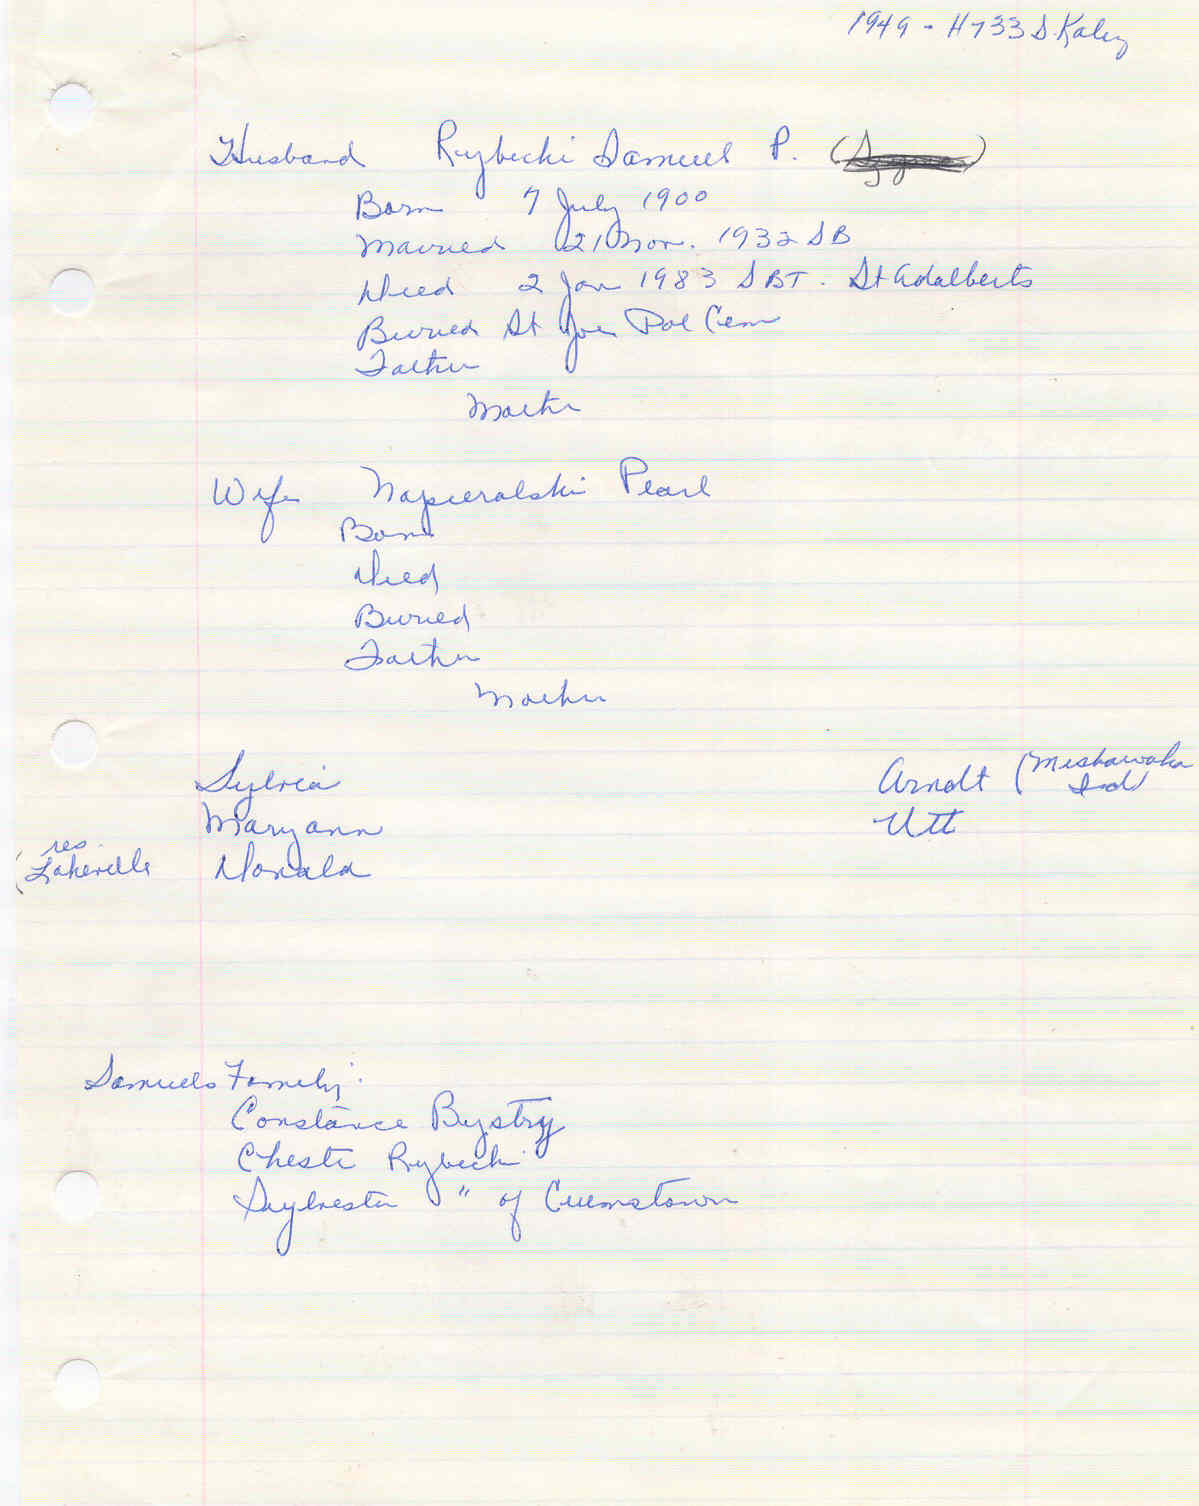 1949 - H 733 S. Kaley
Husband Rybicki Samuel P.
Born 7 July 1900
Married 21 Nov. 1932 SB
Died 2 Jan 1983 SBT. St Adalberts
Buried St Joe Pol Cem
Father
Mother
Wife Napieralski Pearl
Born
Died
Buried
Father
Mother
Sylvia Arndt (Mishawaka Ind)
Maryann Utt
(res. Lakeville Donald
Samuels Family:
Constance Bystry
Chester Rybicki
Sylvester " of Crumstown